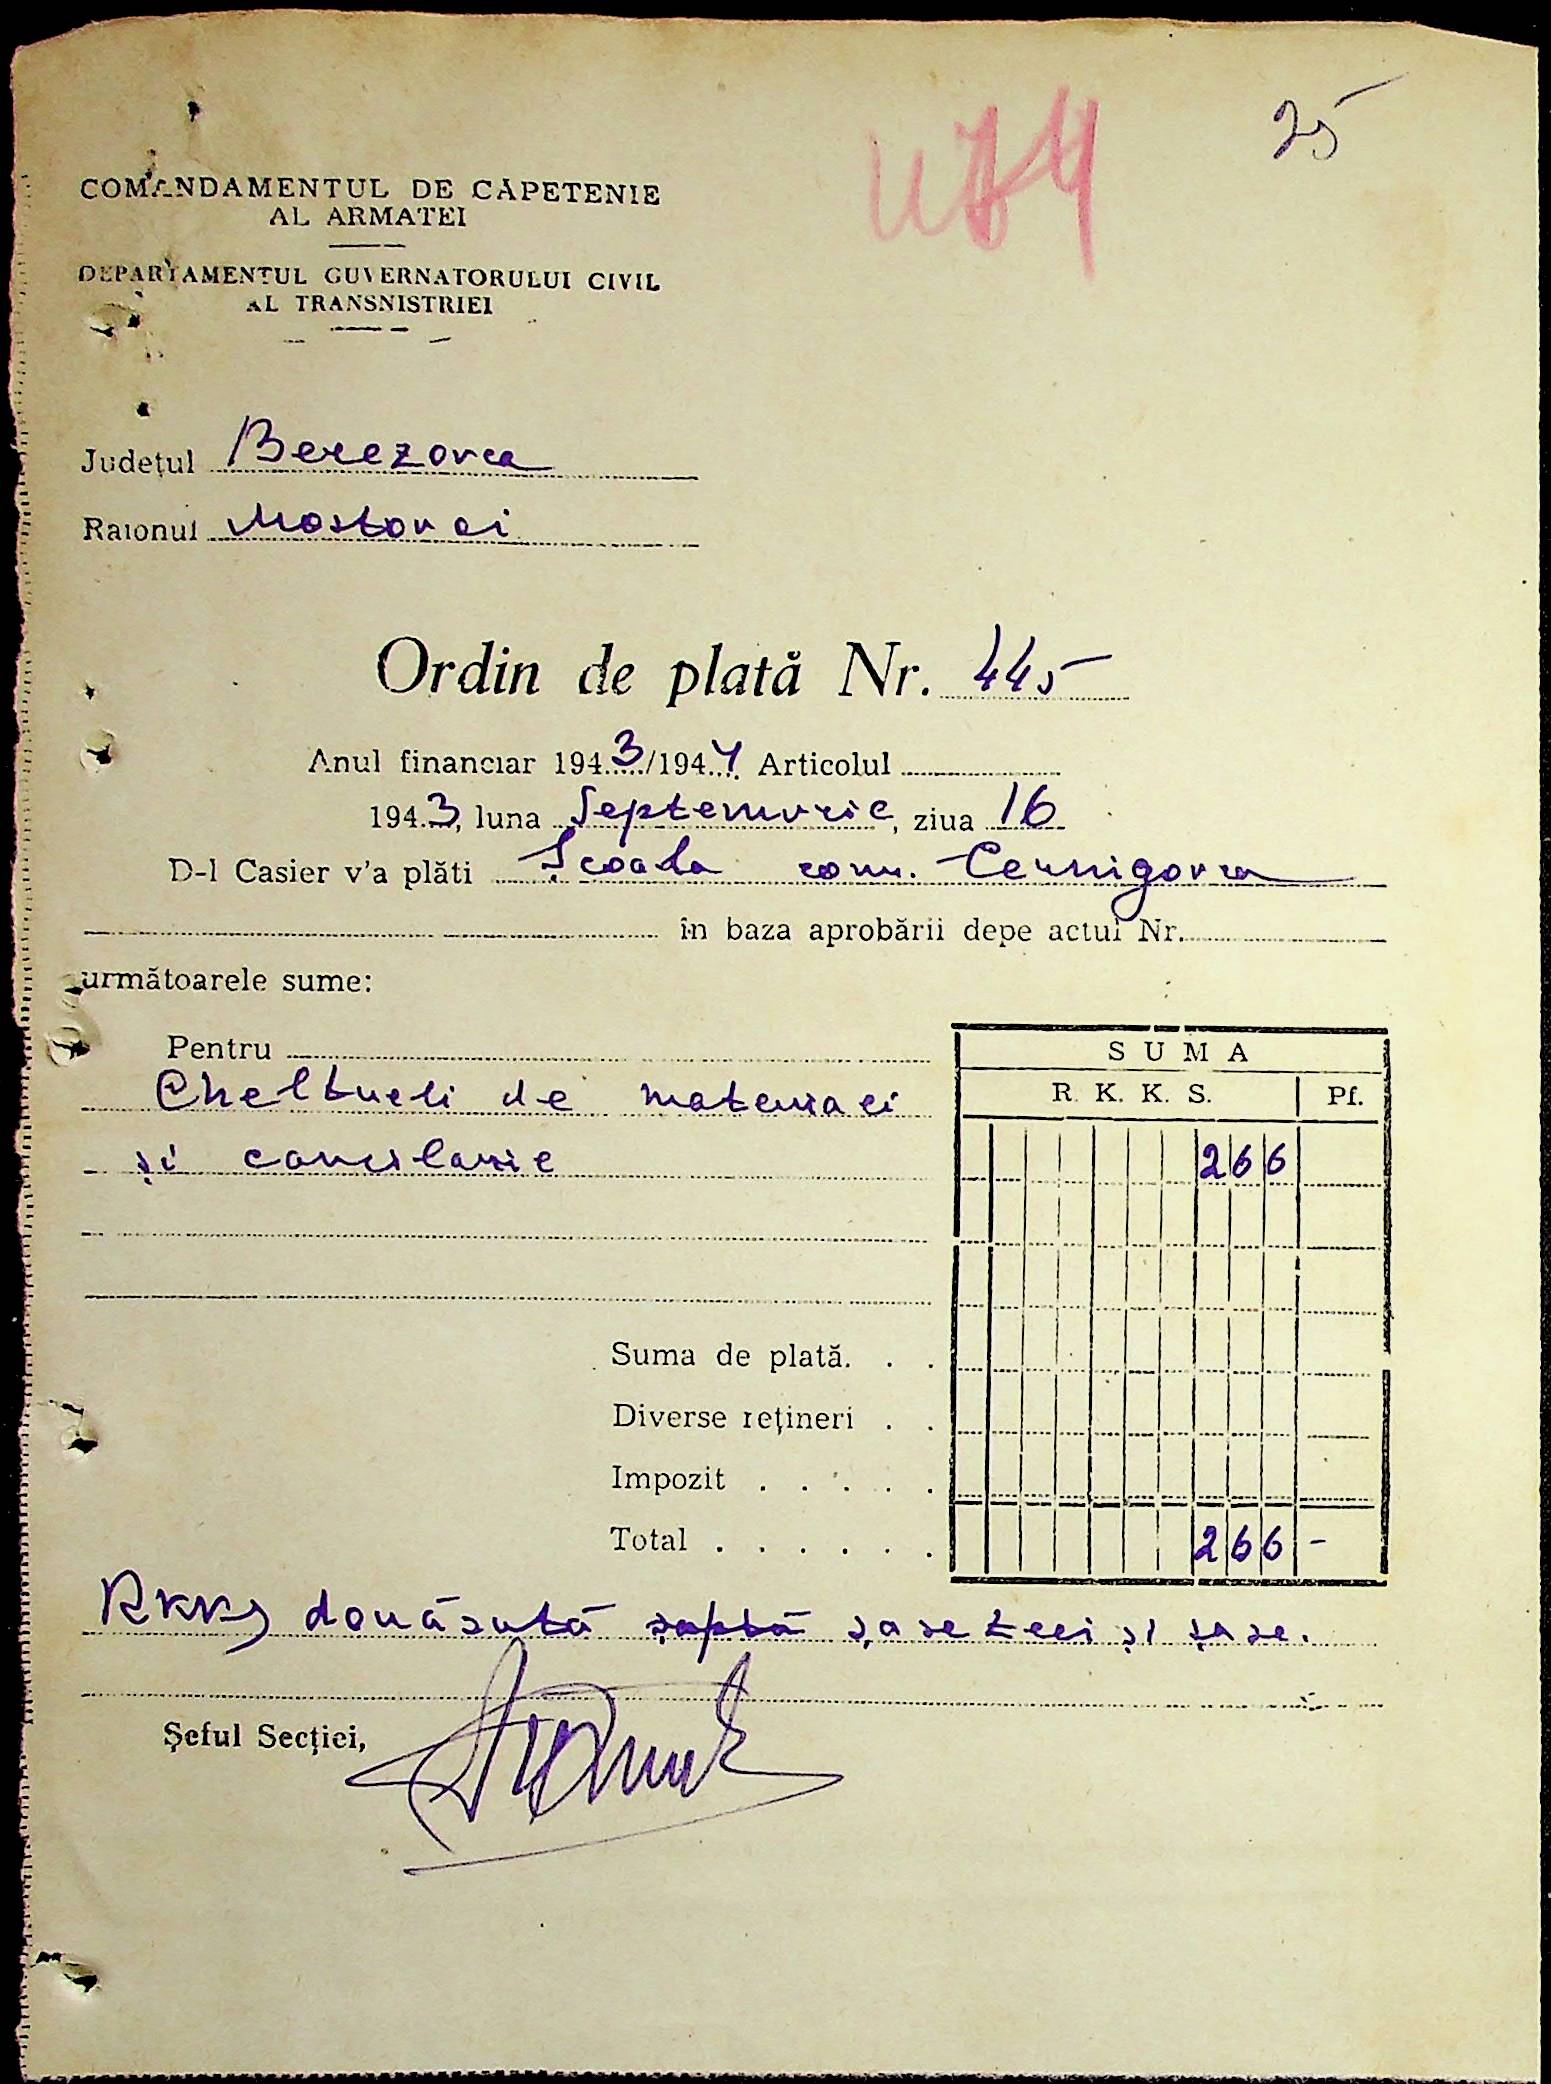 25
COMANDAMENTUL DE CĂPETENIE
AL ARMATEI
DEPARTAMENTUL GUVERNATORULUI CIVIL
AL TRANSNISTRIEI
Județul Berezovca
Raionul Mostovoi
Ordin de plată Nr. 445
Anul financiar 1943/1944 Articolul
1943, luna Septemvrie, ziua 16
D-l Casier v'a plăti Școala com. Cernigovca
în baza aprobării depe actul Nr.
următoarele sume:
Pentru
SUMA
R. K. K. S. Pf.
Cheltueli de materiaei
și cancelarie 266
Suma de plată. . .
Diverse rețineri . .
Impozit . . . . .
Total . . . . . . 266 -
RKKS douăsută șaptă șasezeci și șase.
Șeful Secției,